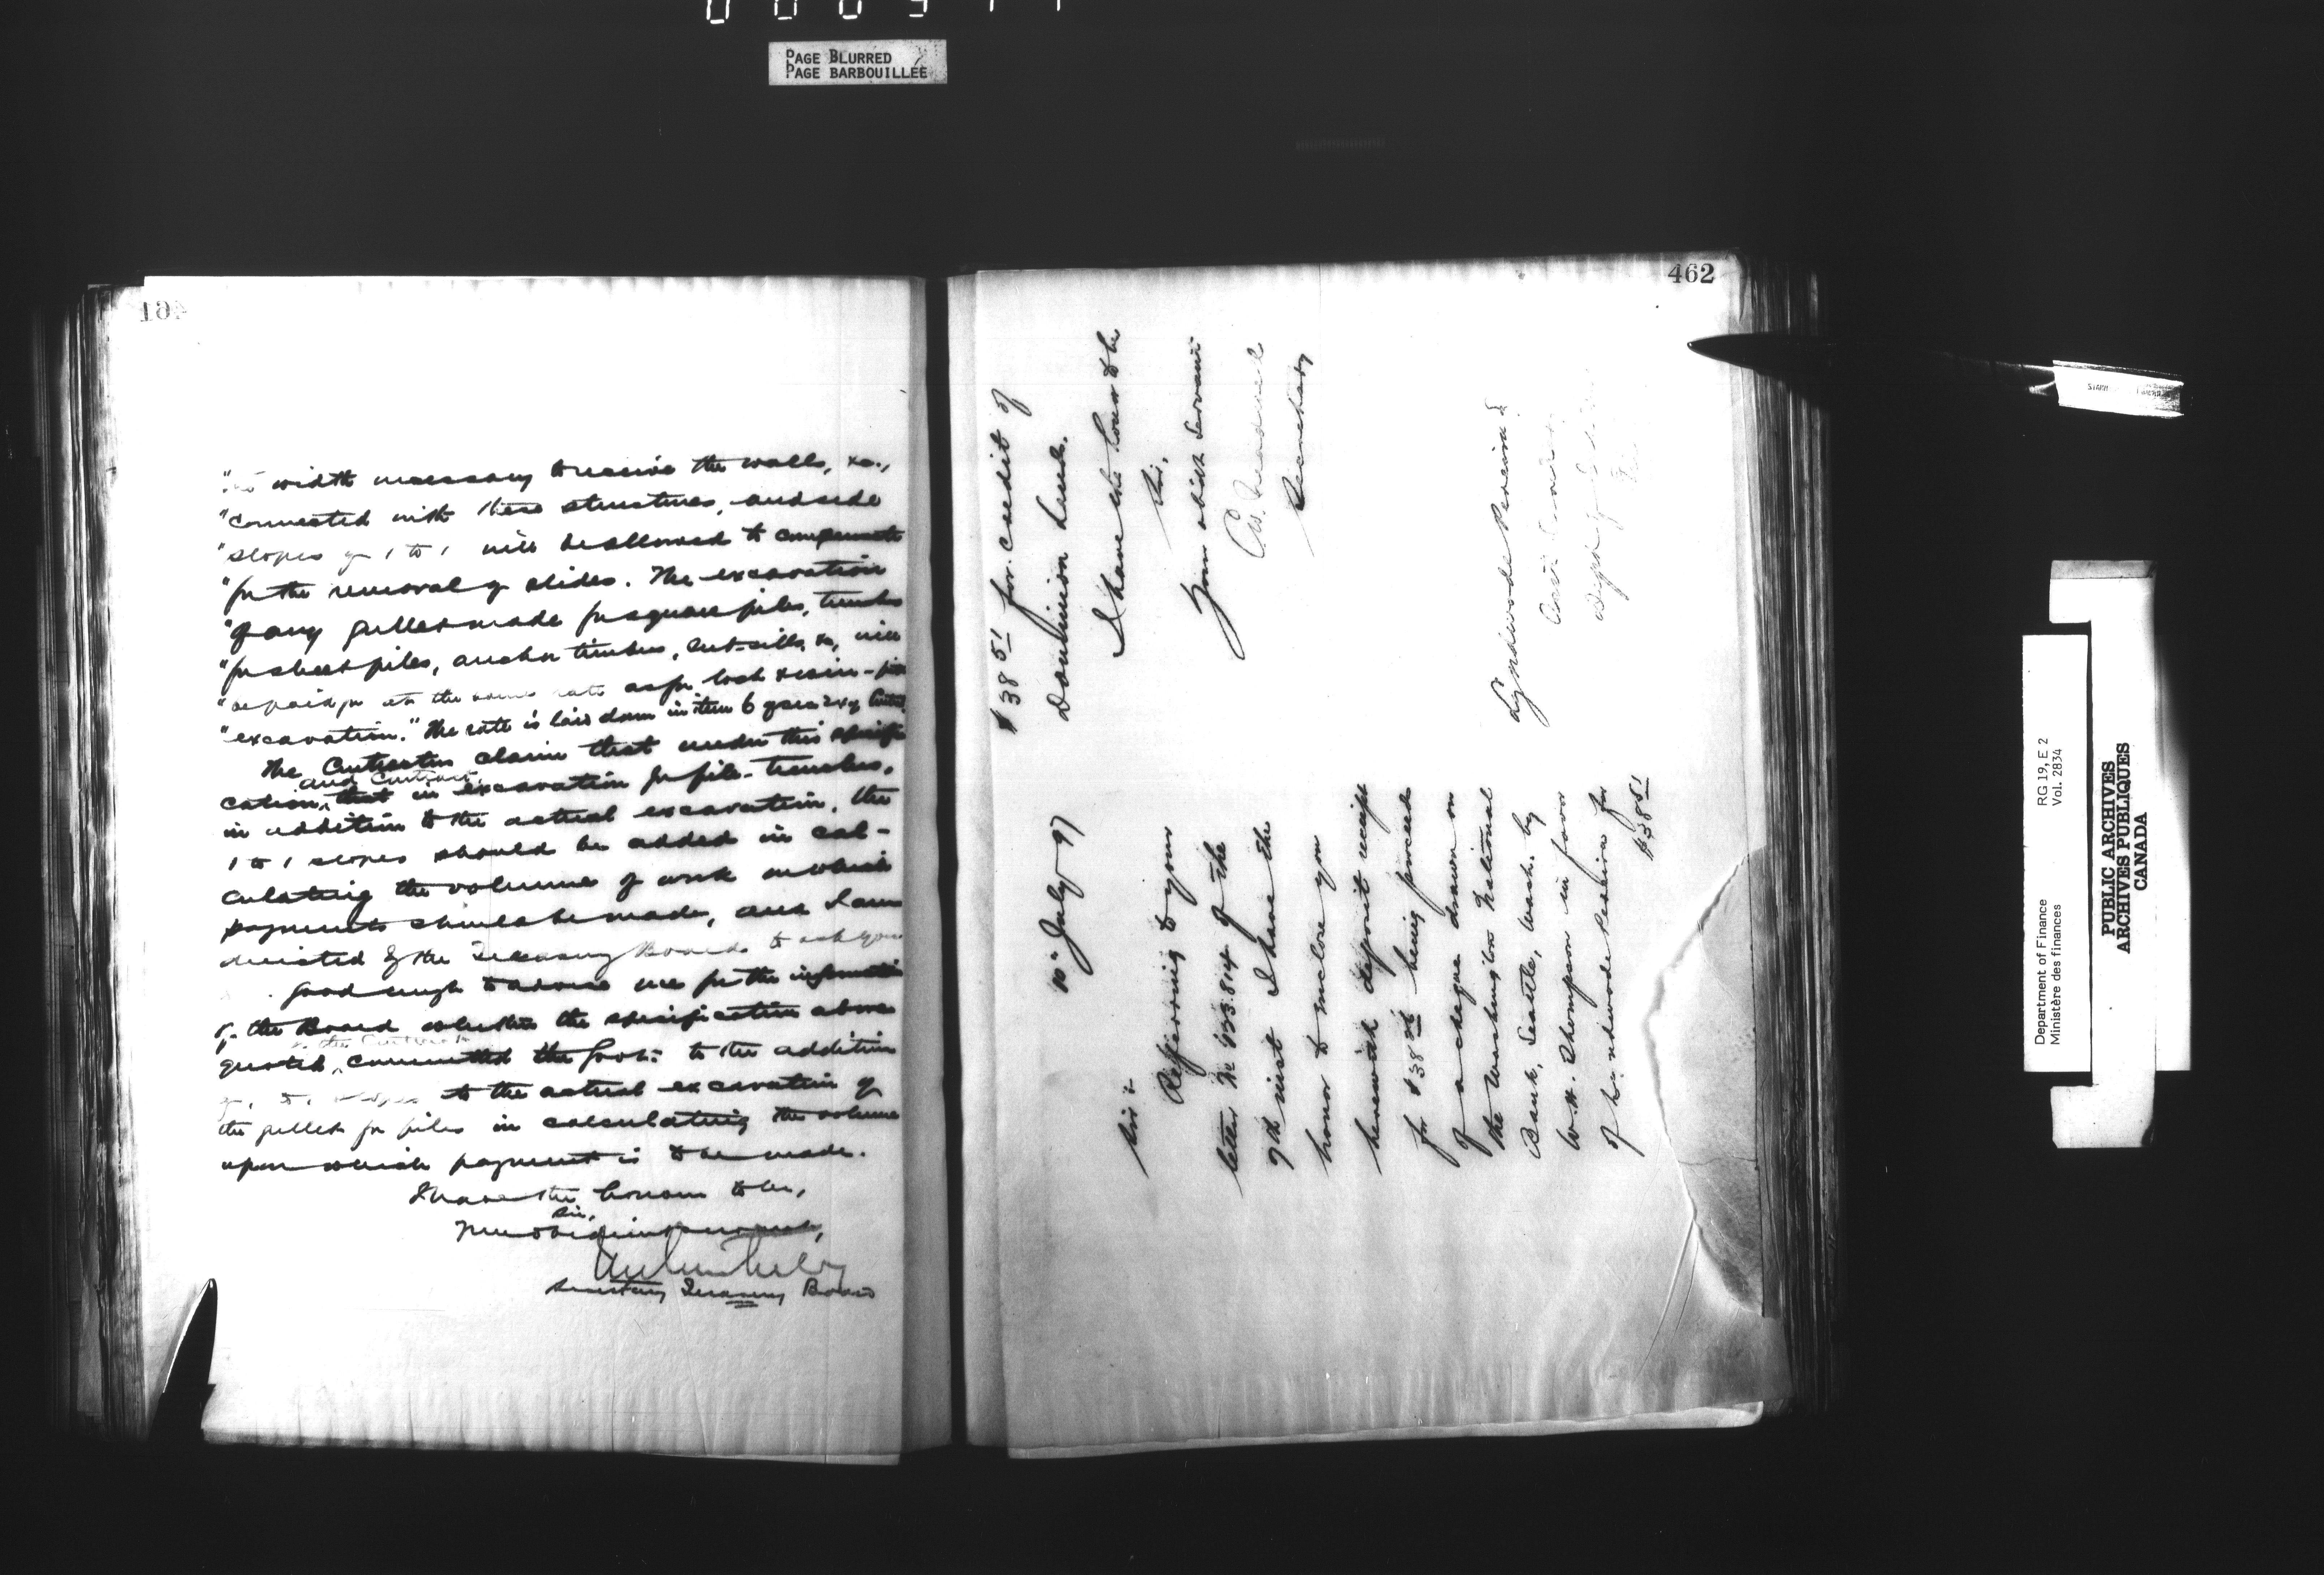 PAGE BLURRED
PAGE BARBOUILLÉE
461
width necessary to receive the walls, &c.,
"connected with these structures, and side
"slopes of 1 to 1 will be allowed to compensate
"for the removal of slides. The excavation
"of any gullet made for square piles, trenches
"for sheet piles, anchor timbers, cut-sills, &c, will
"be paid for at the same rate as for lock & weir-pit
"excavation." The rate is laid down in item 6
The Contractors claim that under this specifi-
and Contract
cation, that in excavation for pile-trenches,
in addition to the actual excavation, the
1 to 1 slopes should be added in cal-
culating the volume of work on which
payment should be made, and I am
directed by the Treasury Board to ask you
good enough to advise me for the information
of the Board whether the specification above
& the Contract
quoted, committed the Govt. to the addition
to the actual excavation of
the gullet for piles in calculating the volume
upon which payment is to be made.
I have the honour to be,
Sir,
Your obedient servant,
Secretary Treasury Board
462
10th July 97
Sir:-
Referring to yours
letter No 623.814 of the
9th inst I have the
honor to enclose you
herewith deposit receipt
for $38 being proceeds
of a cheque drawn on
the Washington National
Bank, Seattle, Wash. by
W.H. Thompson in favor
of Lyndwode Pereira for
$38 51
$38 51 for credit of
Dominion Lands.
I have the honor to be
Sir,
Your obdt Servant
Secretary
Lyndwode Pereira
Department of Finance
Ministère des finances
RG 19, E 2
Vol. 2834
PUBLIC ARCHIVES
ARCHIVES PUBLIQUES
CANADA